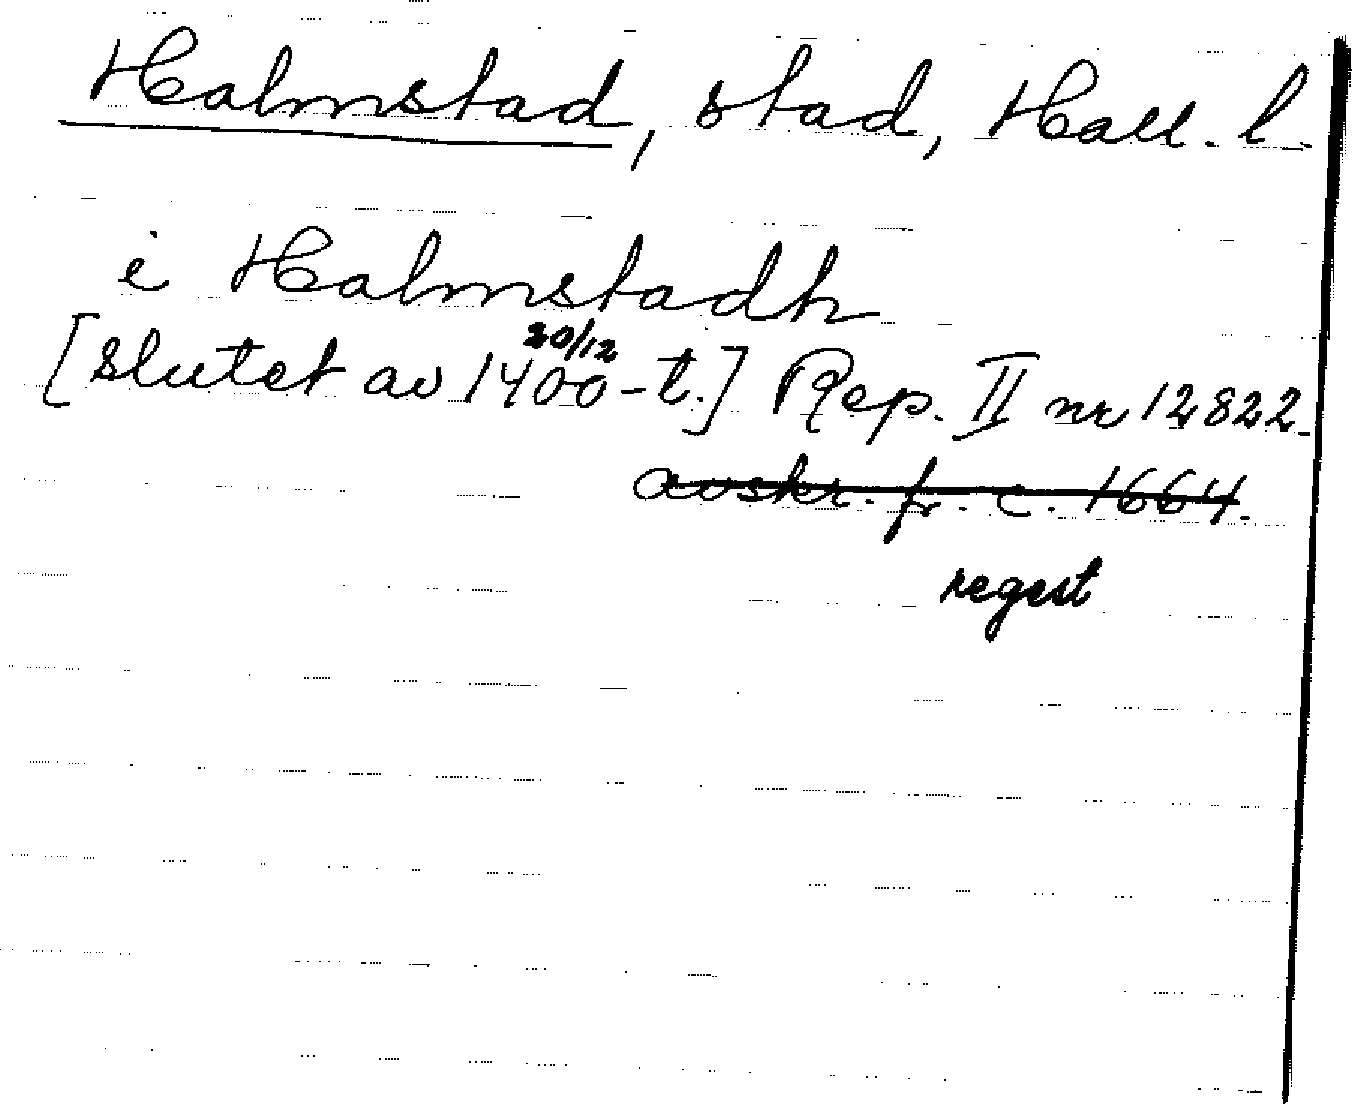 Halmstad, stad, Hall. l.
i Halmstadh
20/12
[Slutet av 1400-t.] Rep. II nr 12822.
avskr. fr. c. 1664.
regest